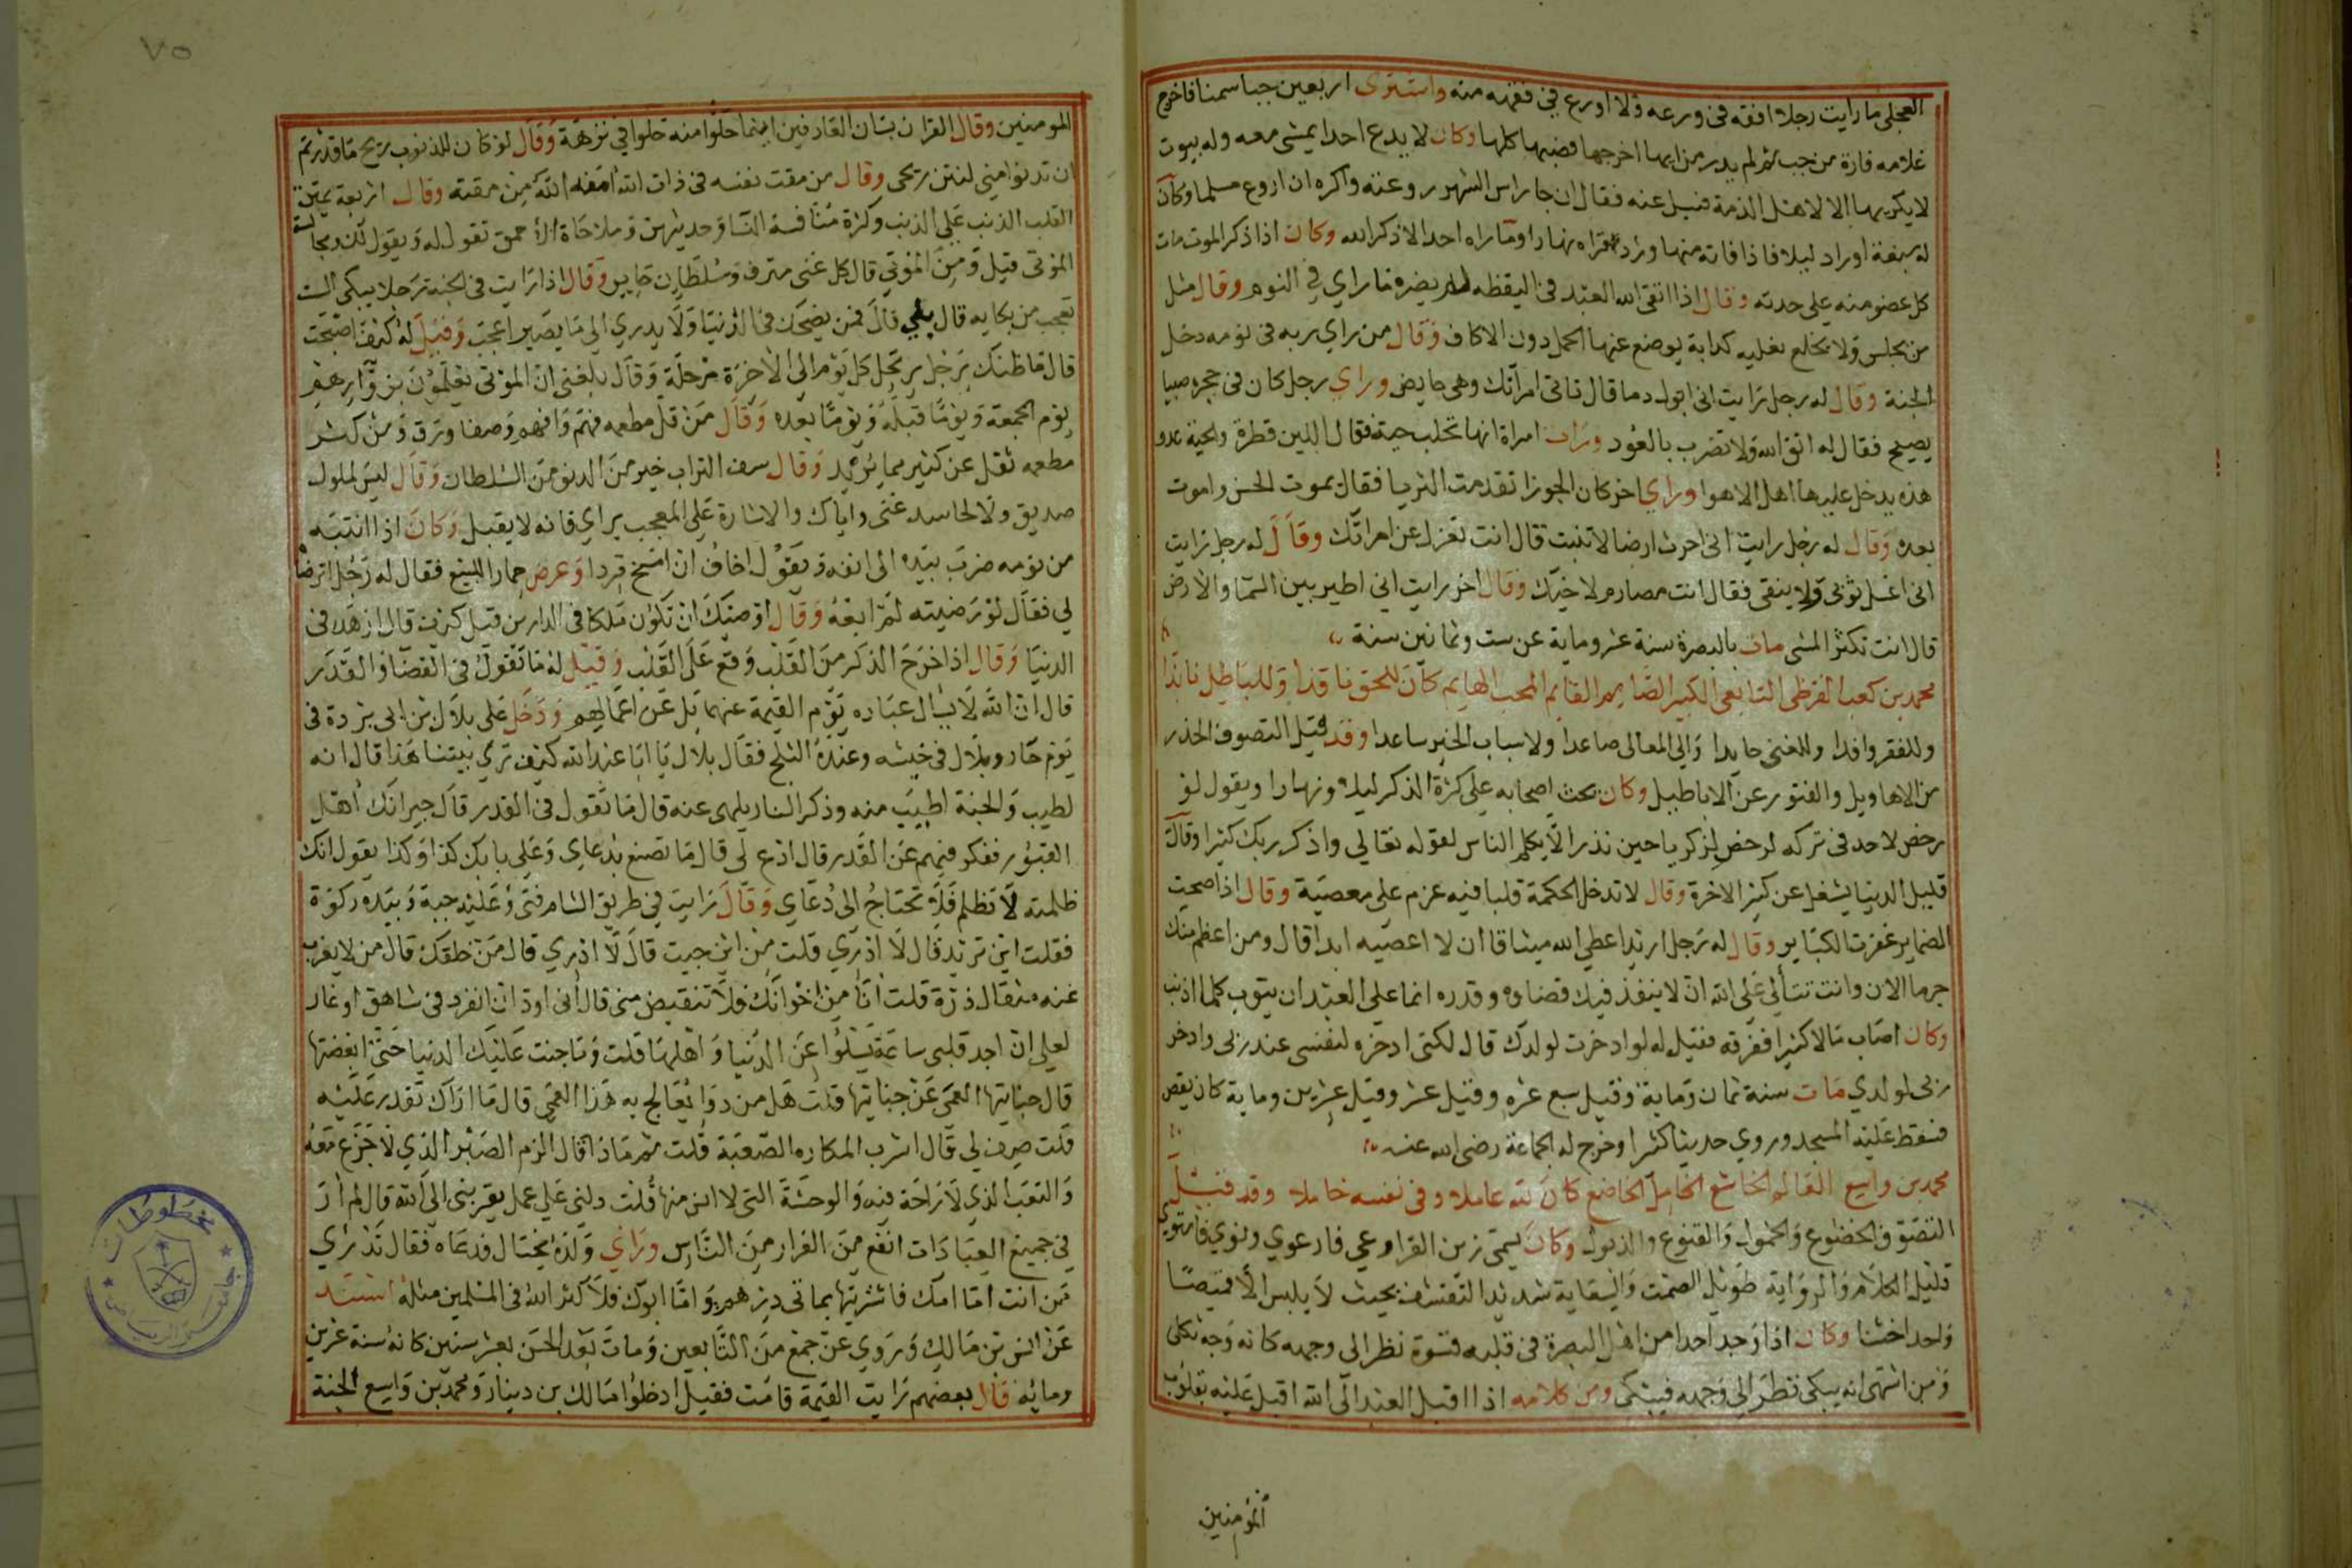 العجلى ما رايت رجلا افقه فى ورعه ولا اورع في فقهه منه واشترى اربعين جبا سمنا فاخرج
غلامه فارة من جب ثم لم يدر من ايها اخرجها فصبها كلها وكان لا يدع احدا يمشى معه وله بيوت
لا يكريها الا لاهل الذمة فسيل عنه فقال ان جا راس الشهر روعته واكره ان اروع مسلما وكان
له سبعة اوراد ليلا فاذا فاته منها ورد قراه نهارا وما راه احد الا ذكر الله وكان اذا ذكر الموت مات
كل عضو منه على حدته وقال اذا اتقى الله العبد فى اليقظه لم يضره ما راي في النوم وقال مثل
من يجلس ولا يخلع نعليه كدابة يوضع عنها الحمل دون الاكاف وقال من راي ربه فى نومه دخل
الجنة وقال له رجل رايت انى ابول دما قال تاتى امراتك وهى حايض وراي رجل كان فى حجره صبيا
يصيح فقال له اتق الله ولا تضرب بالعود ورات امراة انها تحلب حية فقال اللبن فطرة والحية عدو
هذه يدخل عليها اهل الاهوا وراي اخر كان الجوزا تقدمت الثريا فقال يموت الحسن واموت
بعده وقال له رجل رايت انى احرث ارضا لا تنبت قال انت تعزل عن امراتك وقال له رجل رايت
انى اغسل ثوبى ولا ينقى فقال انت مصارم لاخيك وقال اخر رايت اني اطير بين السما والارض
قال انت تكثر المنى مات بالبصرة سنة عشر وماية عن ست وثمانين سنة
محمد بن كعب القرظى التابعى الكبير الصايم القايم المحب الهايم كان للحق ناقدا وللباطل نابذا
وللفقر وافدا وللغنى حامدا والى المعالى صاعدا ولاسباب الخير ساعدا وقد قيل التصوف الحذر
من الاهاويل والفتور عن الاباطيل وكان يحث اصحابه على كثرة الذكر ليلا ونهارا ويقول لو
رخص لاحد فى تركه لرخص لزكريا حين نذر الا يكلم الناس لقوله تعالي واذكر ربك كثيرا وقال
قليل الدنيا يشغل عن كثير الاخرة وقال لا تدخل الحكمة قلبا فيه عزم على معصية وقال اذا صحت
الضماير غفرت الكباير وقال له رجل اريد اعطي الله ميثاقا ان لا اعصيه ابدا قال ومن اعظم منك
جرما الان وانت تتألي على الله ان لا ينفذ فيك قضاوه وقدره انما على العبد ان يتوب كلما اذنب
وكان اصاب مالا كثيرا ففرقه فقيل له لو ادخرت لولدك قال لكنى ادخره لنفسى عند ربى وادخر
ربى لولدي مات سنة ثمان وماية وقيل سبع عشره وقيل عشر وقيل عشرين وماية كان يقص
فسقط عليه المسجد وروي حديثا كثيرا وخرج له الجماعة رضى الله عنه
محمد بن واسع العالم الخاشع الخامل الخاضع كان لله عاملا وفى نفسه خاملا وقد قيل
التصوف الخضوع والخمول والقنوع والذبول وكان يسمى زين القرا وعي فارعوي ونوي فارتوى
قليل الكلام والرواية طويل الصمت والسقاية شديد التقشف بحيث لا يلبس الا قميصا
واحدا خشنا وكان اذا وجد احدا من اهل البصرة فى قلبه قسوة نظر الى وجهه كانه وجه ثكلى
ومن اشتهى انه يبكى نظر الي وجهه فيبكى ومن كلامه اذا اقبل العبد الى الله اقبل عليه بقلوب
المومنين
٧٥
المومنين وقال القران بستان العارفين اينما حلوا منه حلوا في نزهة وقال لو كان للذنوب ريح ما قدرتم
ان تدنوا مني لنتن ريحى وقال من مقت نفسه فى ذات الله امنه الله من مقته وقال اربعة يمتن
القلب الذنب على الذنب وكثرة منافسة النسا وحديثهن وملاحاة الاحمق تقول له ويقول لك ومجالسة
الموتى قيل ومن الموتي قال كل غنى مترف وسلطان جاير وقال اذا رايت فى الجنة رجلا يبكى الست
تعجب من بكايه قال بلي قال فمن يضحك فى الدنيا ولا يدري الى ما يصير اعجب وقيل له كيف اصبحت
قال ما ظنك برجل يرتحل كل يوم الى الاخرة مرحلة وقال بلغنى ان الموتى يعلمون بزوارهم
يوم الجمعة ويوما قبله ويوما بعده وقال من قل مطعمه فهم وافهم وصفا ورق ومن كثر
مطعمه ثقل عن كثير مما يريد وقال سف التراب خير من الدنو من السلطان وقال ليس لملول
صديق ولا لحاسد غنى واياك والاشارة على المعجب براي فانه لا يقبل وكان اذا انتبه
من نومه ضرب بيده الى انفه ويقول اخاف ان امسخ قردا وعرض حمارا للبيع فقال له رجل اترضاه
لي فقال لو رضيته لم ابعه وقال اوصيك ان تكون ملكا فى الدارين قيل كيف قال ازهد فى
الدنيا وقال اذا خرج الذكر من القلب وقع على القلب وقيل له ما تقول فى القضا والقدر
قال ان الله لا يسال عباده يوم القيمة عنهما بل عن اعمالهم ودخل على بلال بن ابى بردة فى
يوم حار وبلال فى خيشه وعنده الثلج فقال بلال يا ابا عبد الله كيف تري بيتنا هذا قال انه
لطيب والجنة اطيب منه وذكر النار يلهى عنه قال ما تقول فى القدر قال جيرانك اهل
القبور ففكر فيهم عن القدر قال ادع لي قال ما تصنع بدعاي وعلى بابك كذا وكذا يقول انك
ظلمته لا تظلم فلا تحتاج الى دعاي وقال رايت في طريق الشام فتى وعليه جبة وبيده ركوة
فقلت اين تريد قال لا ادري قلت من اين جيت قال لا ادري قال من خلقك قال من لا يعزب
عنه مثقال ذرة قلت انا من اخوانك فلا تنقبض منى قال انى اود ان انفرد فى شاهق او غار
لعلى ان اجد قلبى ساعة يسلوا عن الدنيا واهلها قلت وما جنت عليك الدنيا حتى ابغضتها
قال جنايتها العمى عن جنايتها قلت هل من دوا يعالج به هذا العمى قال ما اراك تقدر عليه
قلت صف لي قال اشرب المكاره الصعبة قلت ثم ماذا قال الزم الصبر الذي لا جزع معه
والتعب الذي لا راحة فيه والوحشة التى لا انس منها قلت دلنى على عمل يقربنى الى الله قال لم ار
في جميع العبادات انفع من الفرار من الناس وراي ولده يختال فدعاه فقال تدري
من انت اما امك فاشتريتها بماتى درهم واما ابوك فلا كثر الله فى المسلمين مثله اسند
عن انس بن مالك وروي عن جمع من التابعين ومات بعد الحسن بعشر سنين كانه سنة عشرين
ومايه قال بعضهم رايت القيمة قامت فقيل ادخلوا مالك بن دينار ومحمد بن واسع الجنة
مخطوطات